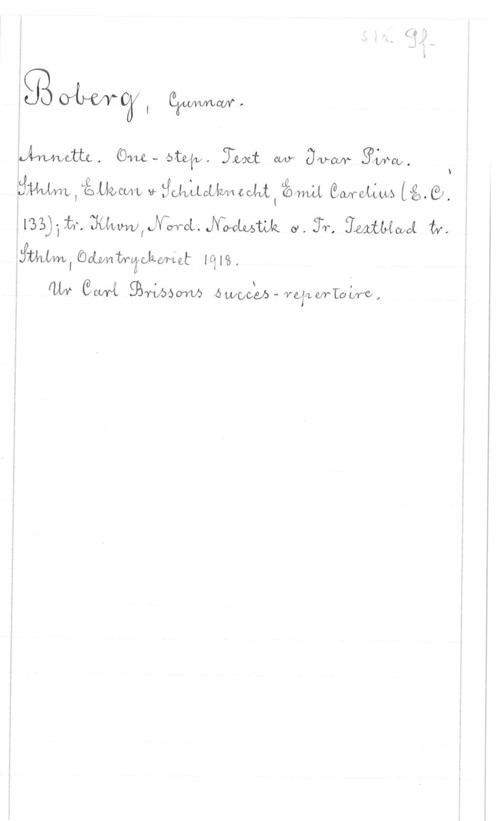 S1k. Gf-
Boberg, Gunnar.
Annette. One-step. Text av Ivar Pira.
Sthlm, Elkan & Schildknecht, Emil Carelius (E.C.
133); tr. Khvn, Nord. Nodestik o. Tr. Textblad tr.
Sthlm, Odentryckeriet 1918.
Ur Carl Brissons succès-repertoire.